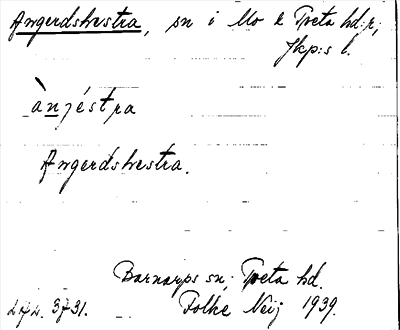 Angerdshestra, sn i Mo o Tveta hd:r;
Jkp:s l.
ànjéstra
Angerdshestra.
Barnarps sn; Tveta hd.
272. 3731. Folke Neij 1939.